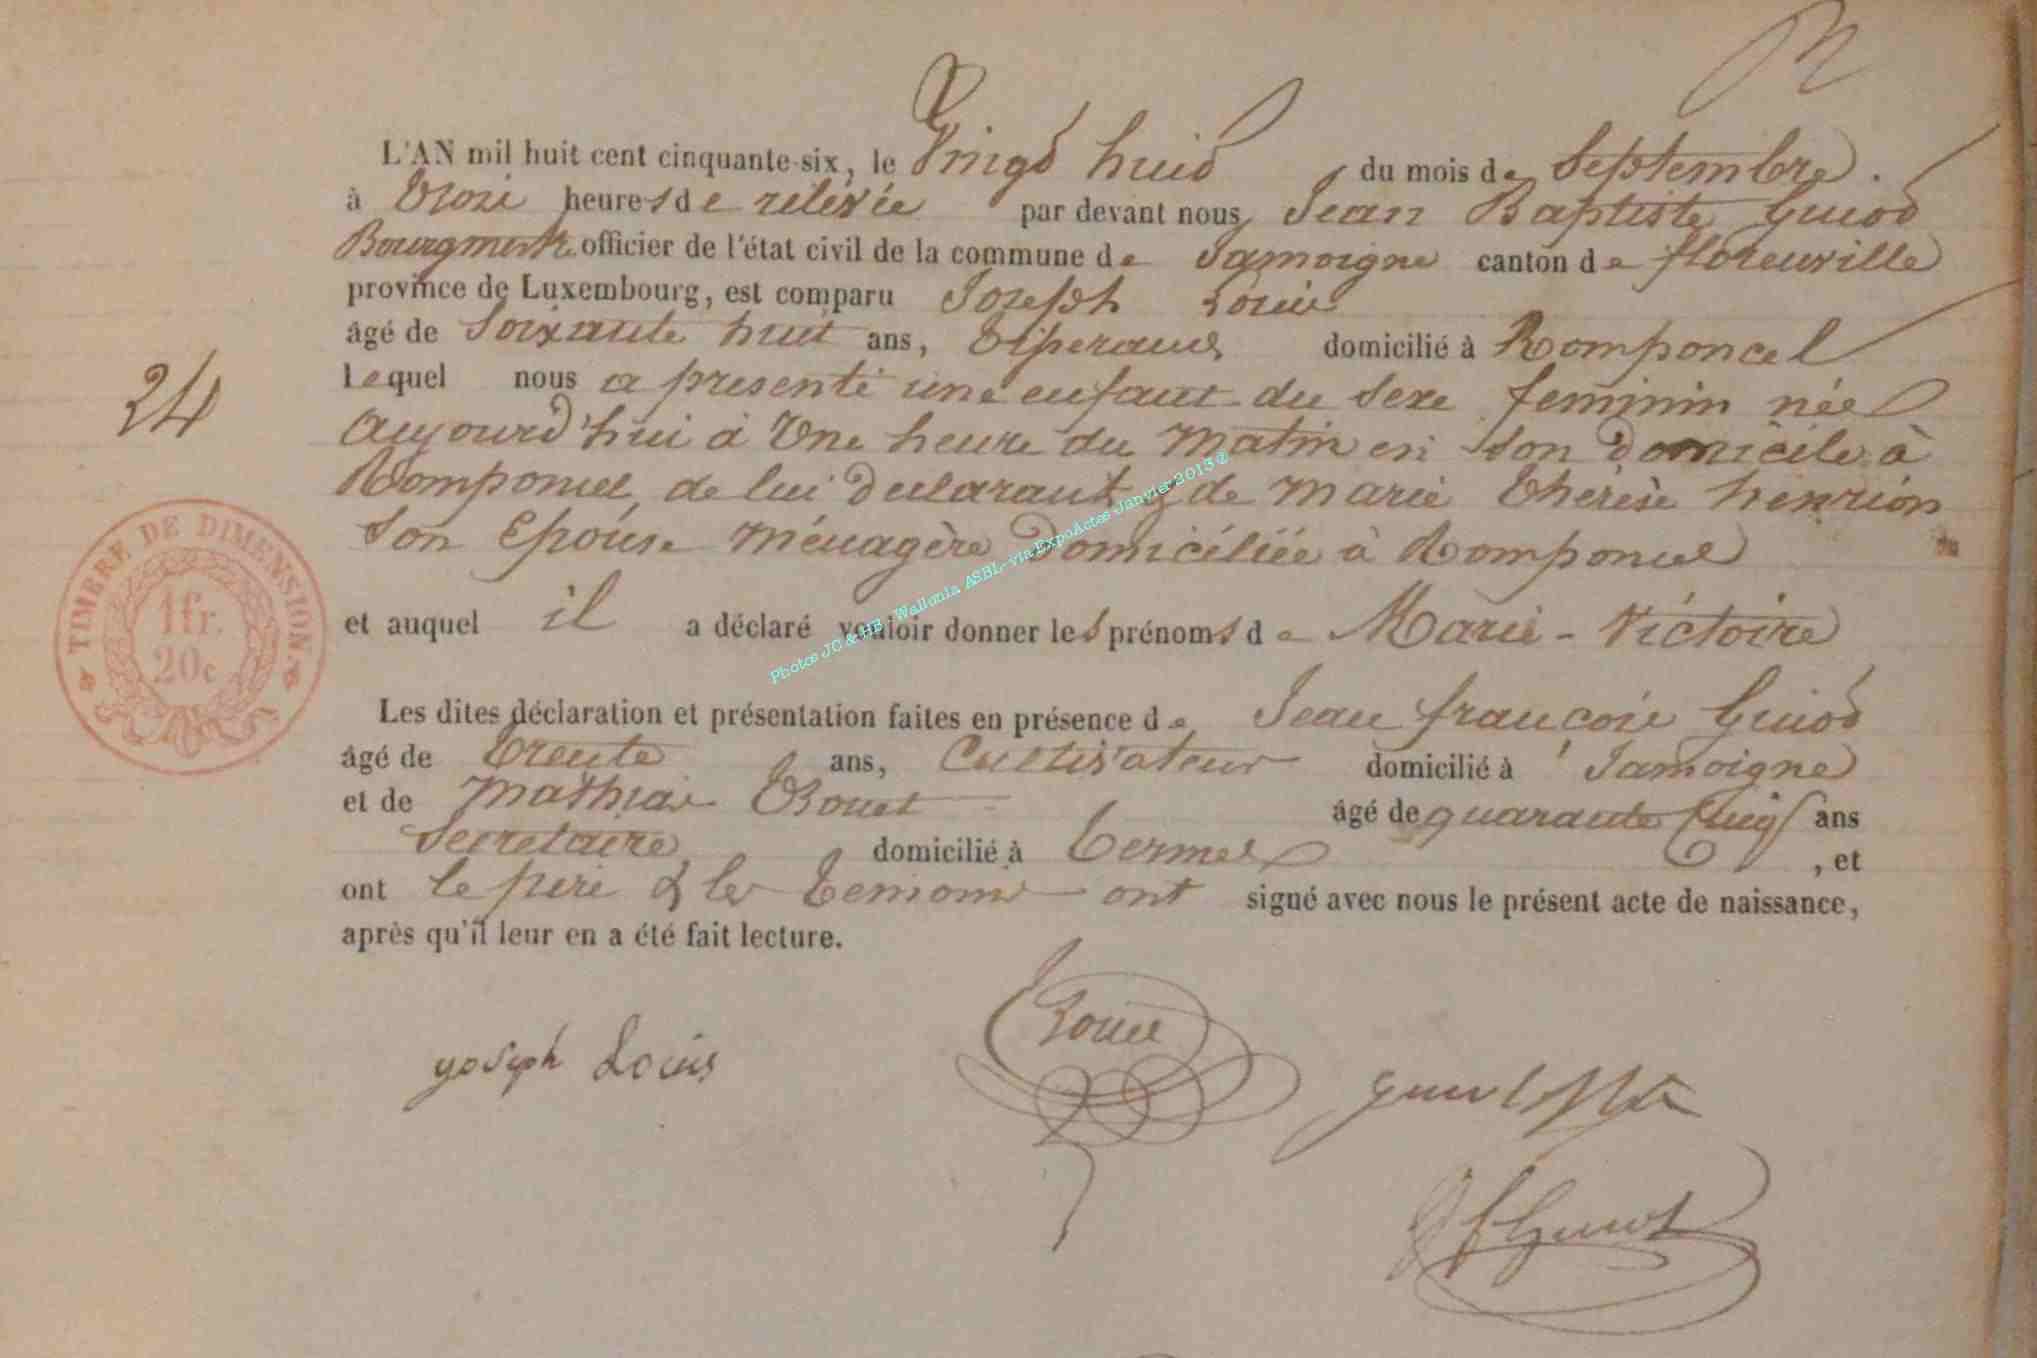 L'AN mil huit cent cinquante-six, le Vingt huit du mois de Septembre
à trois heures de relevée par devant nous Jean Baptiste Guiot
Bourgmestre officier de l'état civil de la commune de Jamoigne canton de florenville
province de Luxembourg, est comparu Joseph Louis
âgé de Soixante huit ans, domicilié à Romponcel
24
lequel nous a presenté une enfant du Sexe feminin née
aujourd'hui à Une heure du Matin en Son Domicile à
Romponcel, de lui declarant & de Marie Therèse henrion
Son Epouse Ménagère Domiciliée à Romponcel
TIMBRE DE DIMENSION
1fr.
20c
et auquel il a déclaré vouloir donner les prénoms de Marie-Victoire
Photos JC & HB, Wallonia ASBL-via ExpoActes Janvier 2013@
Les dites déclaration et présentation faites en présence de Jean françois Guiot
âgé de trente ans, Cultivateur domicilié à Jamoigne
et de Mathias âgé de quarante Cinq ans
Secretaire domicilié à Termes, et
ont le pere & les temoins ont signé avec nous le présent acte de naissance,
après qu'il leur en a été fait lecture.
yoseph Louis
Guiot